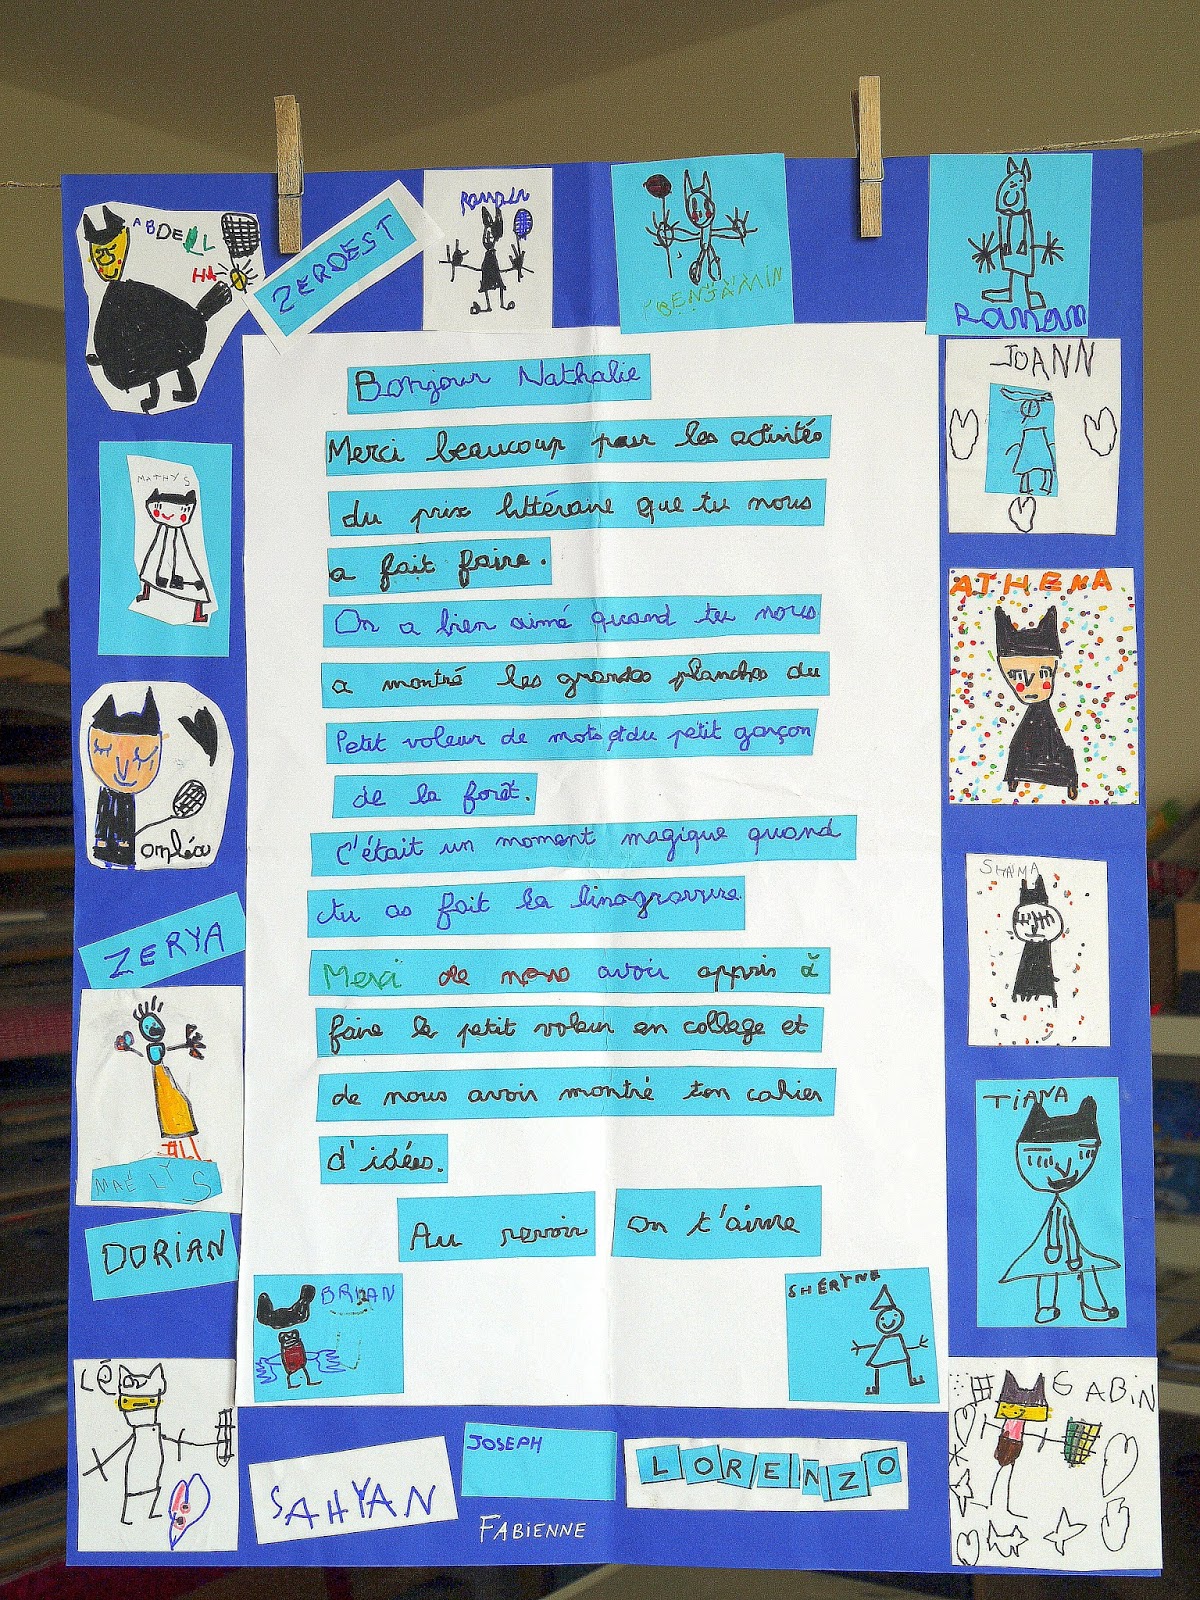 ABDELL
HA
ZERDEST
BENJAMIN
Ronan
JOANN
Bonjour Nathalie
Merci beaucoup pour les activités
du prix littéraire que tu nous
a fait faire.
On a bien aimé quand tu nous
a montré les grandes planches du
Petit voleur de mots et du petit garçon
de la forêt.
C'était un moment magique quand
tu as fait la linogravure.
Merci de nous avoir appris à
faire le petit voleur en collage et
de nous avoir montré ton cahier
d'idées.
Au revoir on t'aime
MATHYS
ATHENA
orphéa
SHAÏMA
ZERYA
TIANA
MAËLYS
DORIAN
BRYAN
SHERYNE
LÉ
GABIN
SAHYAN
JOSEPH
LORENZO
FABIENNE